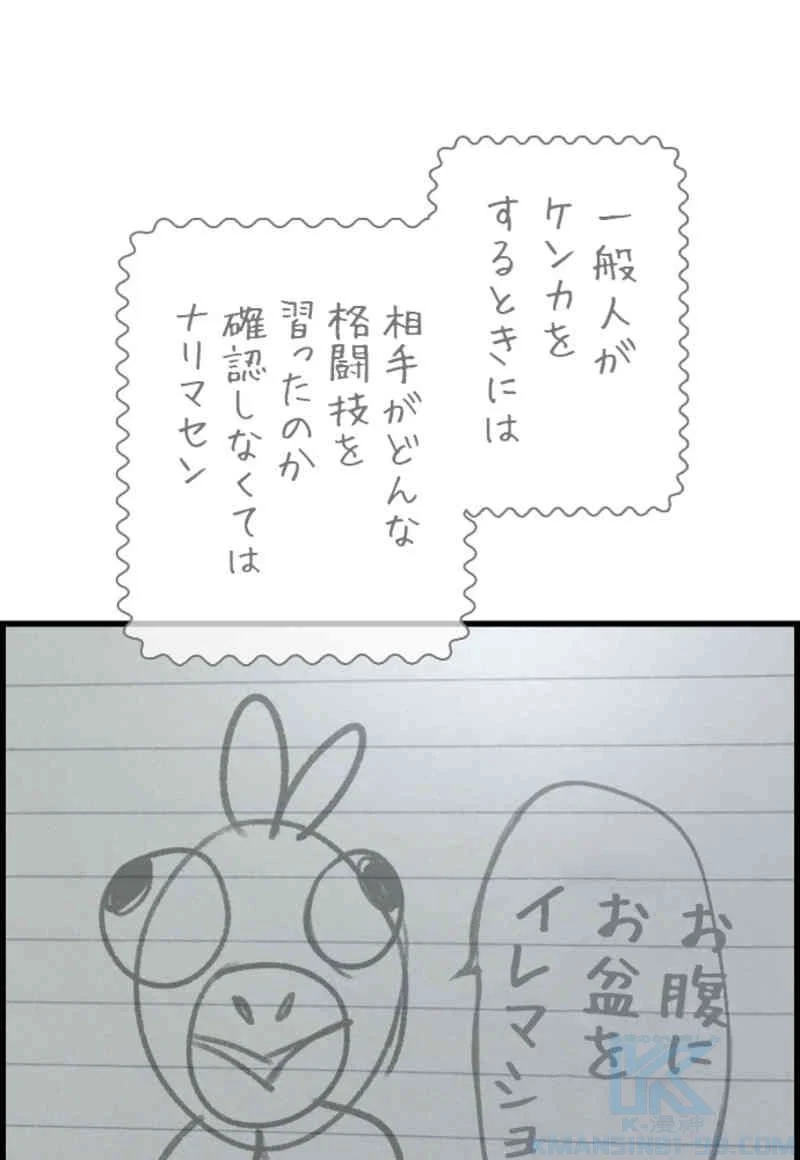 一般人が
ケンカを
するときには
相手がどんな
格闘技を
習ったのか
確認しなくては
ナリマセン
お腹に
お盆を
イレマショ
K-漫神
KMANSIN01-99.COM